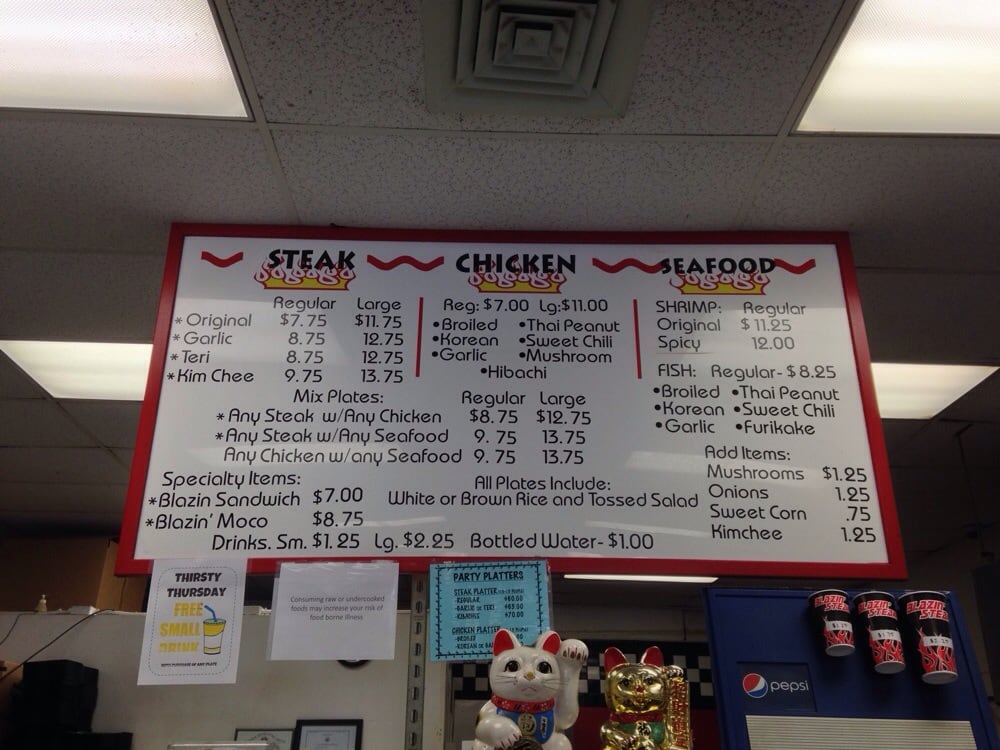 STEAK
Regular Large
* Original $7.75 $11.75
* Garlic 8.75 12.75
* Teri 8.75 12.75
* Kim Chee 9.75 13.75
CHICKEN
Reg: $7.00 Lg:$11.00
•Broiled •Thai Peanut
•Korean •Sweet Chili
•Garlic •Mushroom
•Hibachi
SEAFOOD
SHRIMP: Regular
Original $11.25
Spicy 12.00
FISH: Regular- $8.25
•Broiled •Thai Peanut
•Korean •Sweet Chili
•Garlic •Furikake
Mix Plates: Regular Large
* Any Steak w/Any Chicken $8.75 $12.75
* Any Steak w/Any Seafood 9.75 13.75
Any Chicken w/any Seafood 9.75 13.75
Add Items:
Mushrooms $1.25
Onions 1.25
Sweet Corn .75
Kimchee 1.25
Specialty Items:
*Blazin Sandwich $7.00
*Blazin' Moco $8.75
All Plates Include:
White or Brown Rice and Tossed Salad
Drinks. Sm. $1.25 Lg. $2.25 Bottled Water- $1.00
THIRSTY
THURSDAY
FREE
SMALL
DRINK
WITH PURCHASE OF ANY PLATE
Consuming raw or undercooked
foods may increase your risk of
food borne illness
PARTY PLATTERS
STEAK PLATTER
-REGULAR $60.00
-GARLIC OR TERI $65.00
-KIMCHEE $70.00
CHICKEN PLATTER
-BROILED
-KOREAN OR
pepsi
BLAZIN STEAKS
BLAZIN STEAKS
BLAZIN STEAKS